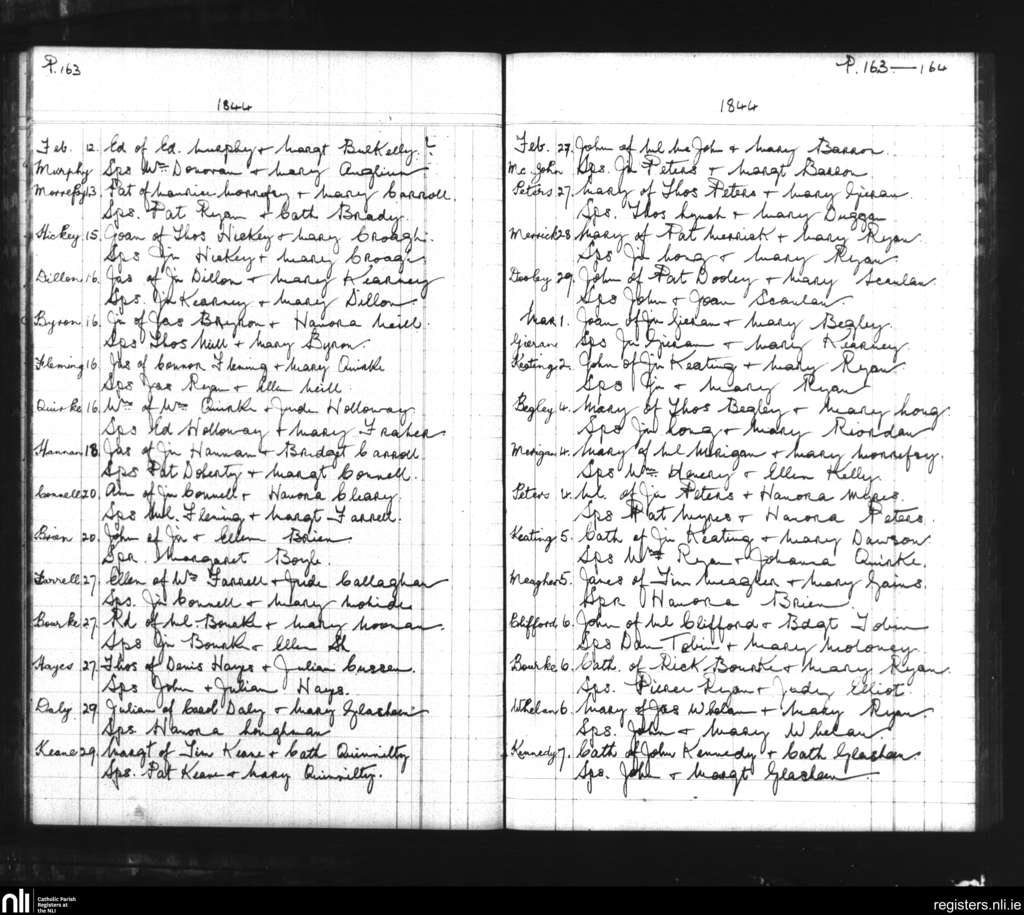 P. 163
1844
Feb. 12 Ed of Ed. Murphy + Margt Buckelly ?
Murphy Sps Wm Donovan + Mary Anglim
Morrefsy 13. Pat of Maurice Morrefsy + Mary Carroll.
Sps. Pat Ryan + Cath Brady.
Hickey 15. Joan of Thos Hickey + Mary Croagh.
Sps Jn Hickey + Mary Croagh
Dillon 16. Jas of Jn Dillon + Mary Kearney
Sps. Jn Kearney + Mary Dillon
Byron 16. Jn of Jas Bryron + Hanora Neill.
Sps Thos Neill + Mary Byron.
Fleming 16 Jas of Connor Fleming + Mary Quirke
Sps Jas Ryan + Ellen Neill.
Quirke 16. Wm of Wm Quirke + Jude Holloway
Sps Ed Holloway + Mary Fraher
Hannan 18. Jas of Jn Hannan + Bridget Carroll.
Sps Pat Doherty + Margt Connell.
Connell 20. Ann of Jn Connell + Hanora Cleary.
Sps Ml. Fleming + Margt Farrell.
Brien 20. John of Jn + Ellen Brien
Spr. Margaret Boyle.
Farrell 27. Ellen of Wm Farrell + Jude Callaghan
Sps. Jn Connell + Mary
Bourke 27. Rd of Ml. Bourke + Mary Noonan.
Sps Jn Bourke + Ellen Sh
Hayes 27. Thos of Denis Hays + Julian Cussen.
Sps John + Julian Hays.
Daly 29. Julian of Daly + Mary Glashen
Sps Hanora Loughnan
Keane 29. Margt of Tim Keane + Cath Quinnilty
Sps. Pat Keane + Mary Quinnilty.
P. 163—164
1844
Feb. 27. John of Ml Mc John + Mary Barron
Mc. John Sps. Jn Peters + Margt Barron
Peters 27. Mary of Thos Peters + Mary Gieran
Sps. Thos Lynch + Mary Duggan
Merrick 28 Mary of Pat Merrick + Mary Ryan.
Sps Jn Long + Mary Ryan
Dooley 29. John of Pat Dooley + Mary Scanlan.
Sps John + Joan Scanlan.
Mar 1. Joan of Jn Gieran + Mary Begley.
Gieran Sps Jn Gieran + Mary Kearney.
Keating 2. John of Jn Keating + Mary Ryan
Sps Jn + Mary Ryan
Begley 4. Mary of Thos Begley + Mary Long.
Sps Jn Long + Mary Riordan
Merigan 4. Mary of Ml Merigan + Mary Morrefsy.
Sps Wm Henery + Ellen Kelly
Peters 4. Ml. of Jn Peters + Hanora Myres.
Sps Pat Myres + Hanora Peters.
Keating 5. Cath of Jn Keating + Mary Dawson
Sps Wm Ryan + Johanna Quirke.
Meagher 5. James of Tim Meagher + Mary Gains.
Spr Hanora Brien.
Clifford 6. John of Ml Clifford + Bdgt Tobin
Sps Dan Tobin + Mary Moloney.
Bourke 6. Cath. of Rick Bourke + Mary Ryan.
Sps. Pierce Ryan + Judy Elliot.
Whelan 6. Mary of Jas Whelan + Mary Ryan
Sps. John + Mary Whelan
Kennedy 7. Cath of John Kennedy + Cath Glashan.
Sps. John + Margt Glashan
nli Catholic Parish
Registers at
the NLI
registers.nli.ie